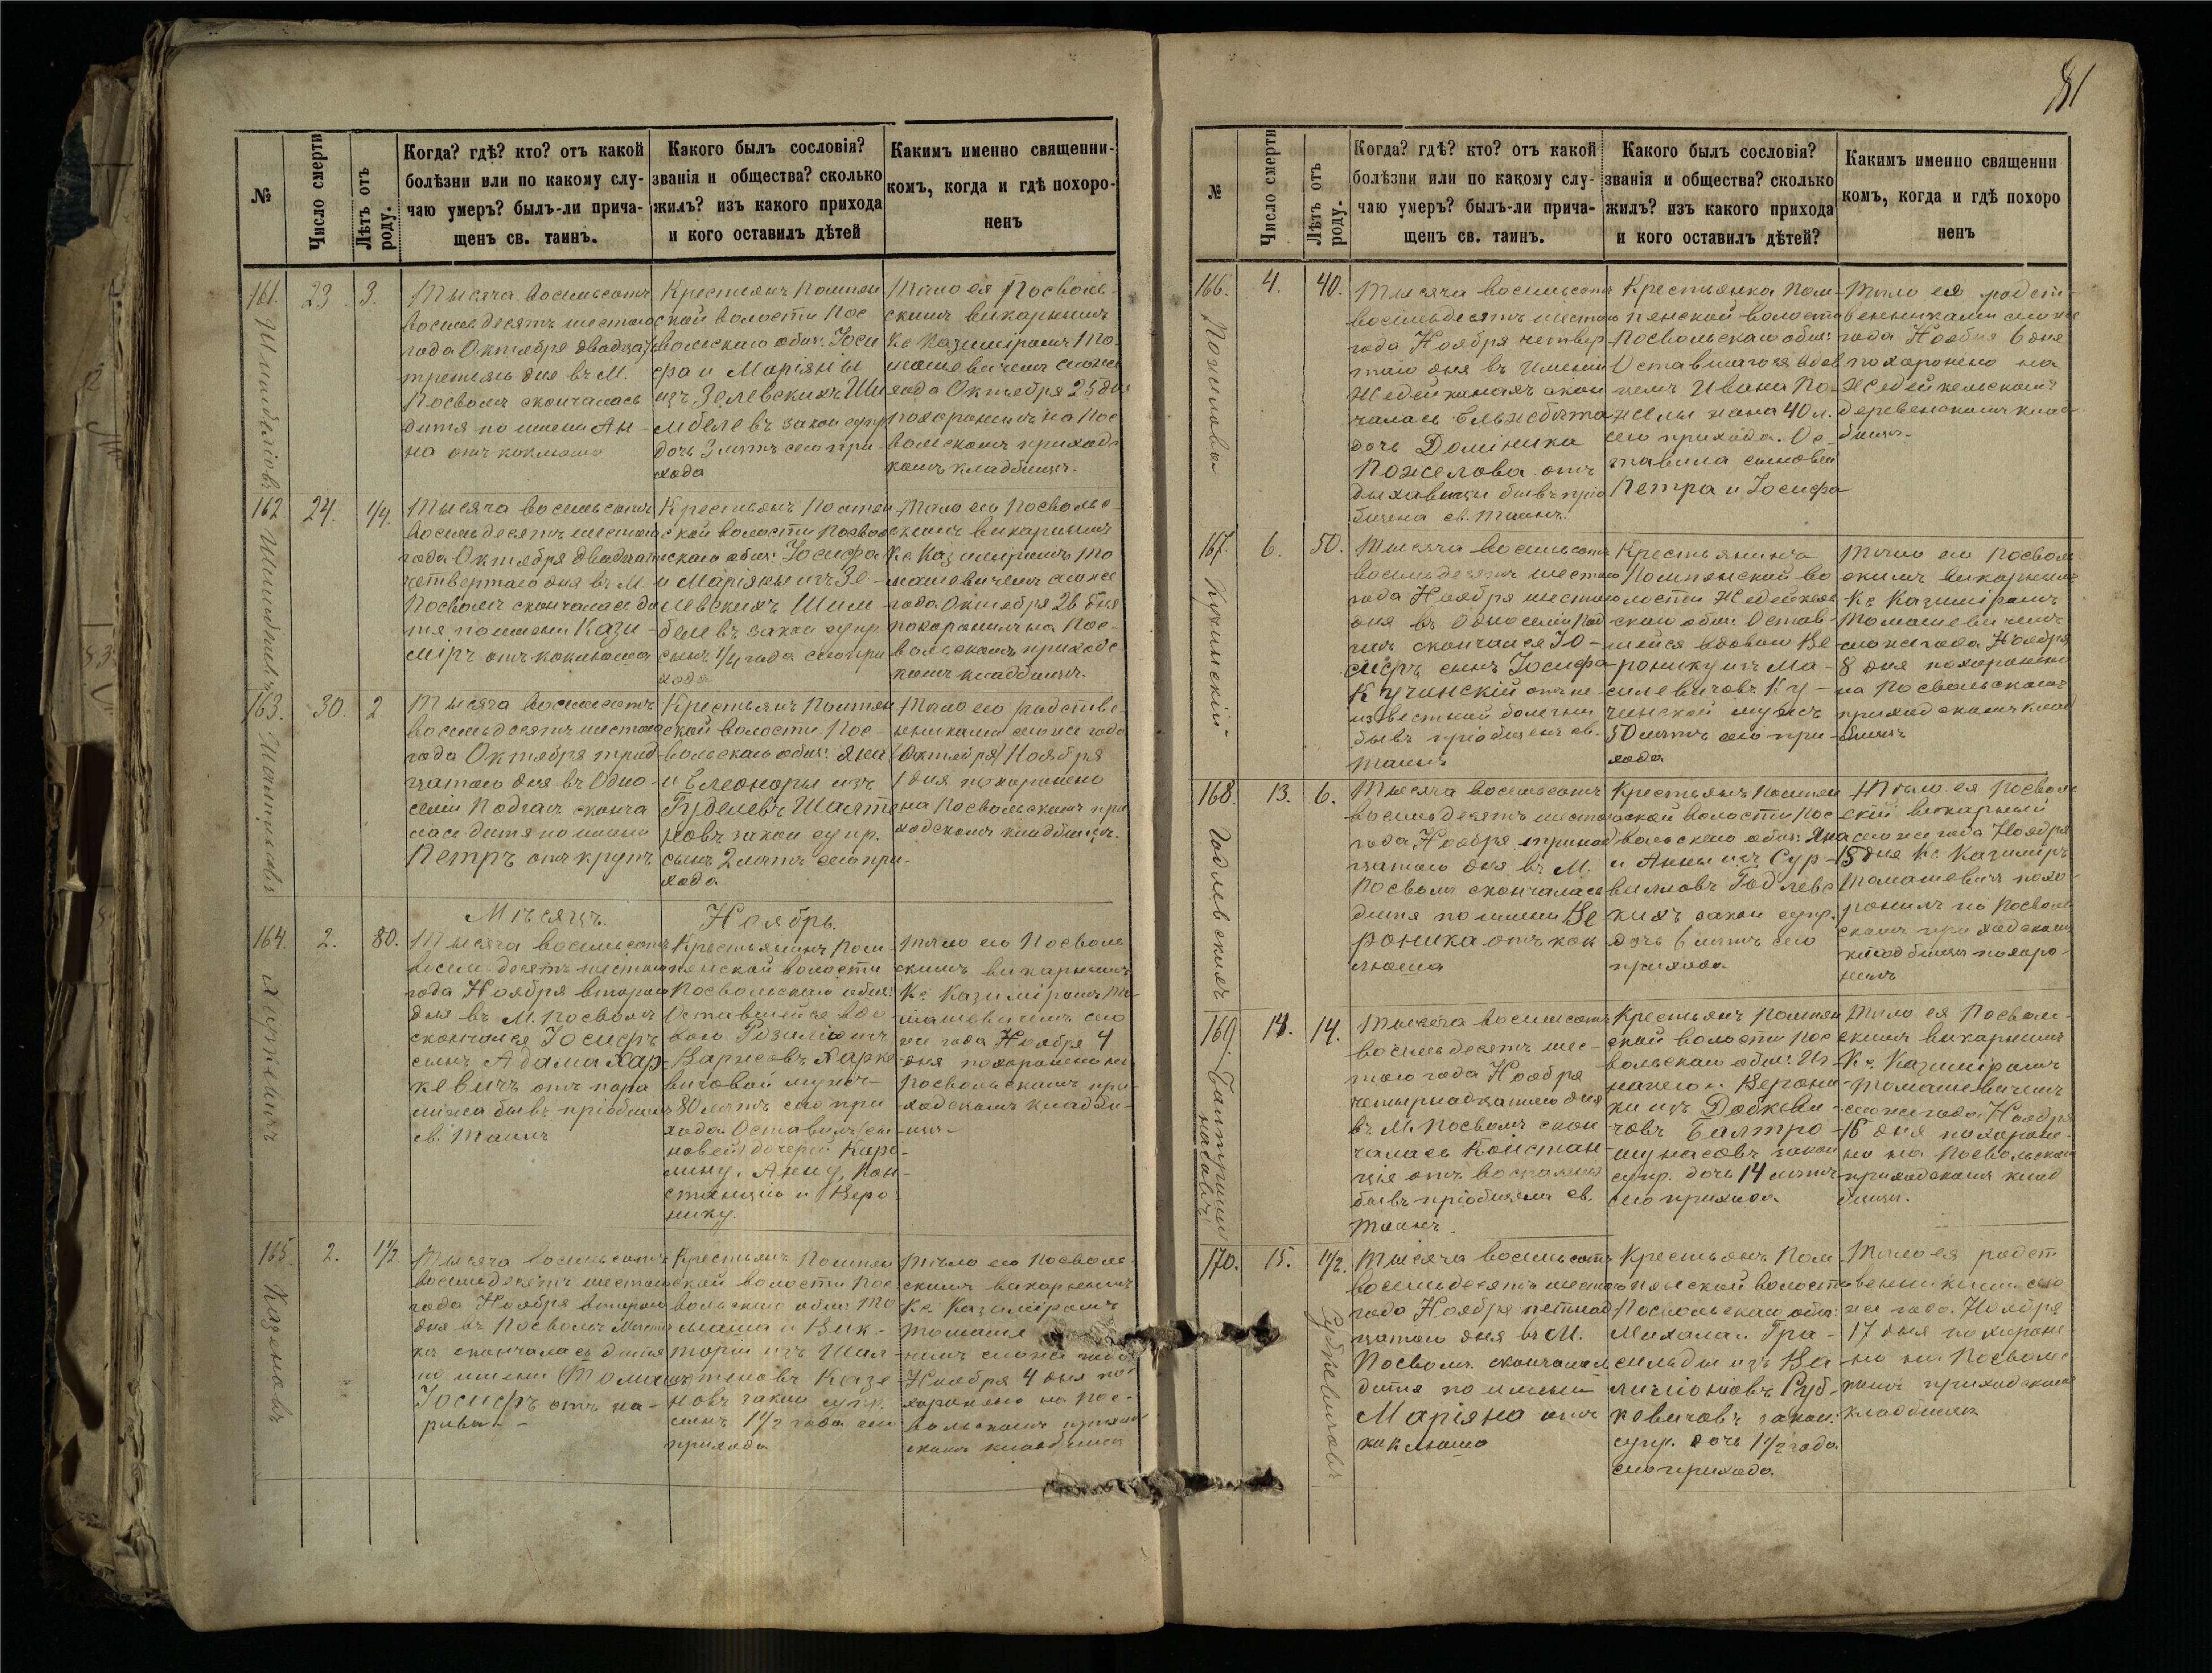 81
№
Число смерти
Лѣтъ отъ роду.
Когда? гдѣ? кто? отъ какой
болѣзни или по какому слу-
чаю умеръ? былъ-ли прича-
щенъ св. таинъ.
Какого былъ сословія?
званія и общества? сколько
жилъ? изъ какого прихода
и кого оставилъ дѣтей
Какимъ именно священни-
комъ, когда и гдѣ похоро-
ненъ
161.
23.
3.
Тысяча восемьсотъ
восемьдесятъ шестого
года Октября двадцать
третьяго дня въ М.
Посволѣ скончалась
дитя по имени Ан-
на отъ коклюша
Крестьянъ Помпян
ской волости Пос-
вольскаго общ: Іоси
фа и Маріяны
изъ Зелевскихъ Ши
мбелевъ закон супр
дочь 3 лѣтъ сего при-
хода
Тѣло ея Посволь-
скимъ викарнымъ
Кс Казиміромъ То-
машевичемъ сегоже
года Октября 25 дня
похоронилъ на Пос
вольскомъ приходс
комъ кладбищѣ.
162
24.
1/4.
Тысяча восемьсотъ
восемьдесятъ шестого
года Октября двадцать
четвертаго дня въ М.
Посволѣ скончалась ди
тя по имени Кази-
міръ отъ коклюша
Крестьянъ Помпян
ской волости Посволь
скаго общ: Іосифа
и Маріяны изъ Зе-
левскихъ Шим-
белевъ закон супр.
сынъ 1/4 года сего при
хода
Тѣло его Посволь-
скимъ викарнымъ
Кс Казиміромъ То
машевичемъ сегоже
года Октября 26 дня
похоронилъ на Пос-
вольскомъ приходс-
комъ кладбищѣ.
163.
30.
2.
Тысяча восемьсотъ
восемьдесятъ шестого
года Октября трид
цатаго дня въ Одно-
селіи Подгай сконча
лась дитя по имени
Петръ отъ крупъ
Крестьянъ Помпян
ской волости Пос-
вольскаго общ: Яна
и Елеоноры изъ
закон супр.
сынъ 2 лѣтъ сего при-
хода
Тѣло его родстве-
нниками сегоже года
(Октября) Ноября
1 дня похоронено
на Посвольскомъ при
ходскомъ кладбищѣ.
Мѣсяцъ. Ноябрь.
164.
2.
80.
Тысяча восемьсотъ
восемьдесятъ шестого
года Ноября второго
дня въ М. Посволѣ
скончался Іосифъ
сынъ Адама Хар-
кевичъ отъ пара
лижа бывъ пріобщенъ
св. Таинъ
Крестьянинъ Пом-
пянской волости
Посвольскаго общ:
Оставшейся вдо-
вою Розаліи изъ
Харке
вичовой мужъ
80 лѣтъ сего при
хода. Оставилъ сы-
новей) дочерей Каро-
лину, Анну, Кон-
станцію и Веро-
нику.
Тѣло его Посволь
скимъ викарнымъ
Кс Казиміромъ То-
машевичемъ сего
же года Ноября 4
дня похоронено на
Посвольскомъ при-
ходскомъ кладби-
щѣ
165.
2.
1 1/2.
Тысяча восемьсотъ
восемьдесятъ шестого
года Ноября второго
дня въ Посволѣ
скончалась дитя
по имени
Іосифъ отъ
Крестьянъ Помпян
ской волости Пос
вольскаго общ: То
маша и Вик-
торіи изъ
Казе
новъ закон супр.
сынъ 1 1/2 года сего
прихода
Тѣло его Посволь-
скимъ викарнымъ
Кс. Казиміромъ
Томаше
чемъ сегоже года
Ноября 4 дня по-
хоронено на Пос-
вольскомъ приход
скомъ кладбищѣ
№
Число смерти
Лѣтъ отъ роду.
Когда? гдѣ? кто? отъ какой
болѣзни или по какому слу-
чаю умеръ? былъ-ли прича-
щенъ св. таинъ.
Какого былъ сословія?
званія и общества? сколько
жилъ? изъ какого прихода
и кого оставилъ дѣтей?
Какимъ именно священни
комъ, когда и гдѣ похоро
ненъ
166.
Пожелова
4.
40.
Тысяча восемьсотъ
восемьдесятъ шестого
года Ноября четвер
таго дня въ Имѣніи
скон
чалась Ельжбѣта
дочь Доминика
Пожелова отъ
бывъ прио
бщена св. Таинъ.
Крестьянка Пом-
пянской волости
Посвольскаго общ:
Оставшагося вдов
цемъ Ивана По-
желы жена 40 л.
сего прихода. Ос-
тавила сыновей
Петра и Іосифа
Тѣло ея родст-
венниками сегоже
года Ноября 6 дня
похоронено на
деревенскомъ клад-
бищѣ.
167.
Кучинскій
6.
50.
Тысяча восемьсотъ
восемьдесятъ шестого
года Ноября шестого
дня въ Односеліи Под
скончался Іо-
сифъ сынъ Іосифа
Кучинскій отъ не
извѣстной болѣзни
бывъ пріобщенъ св.
Таинъ
Крестьянинъ
Помпянской во
лости
скаго общ: Остав-
шейся вдовою Ве
роники изъ Ма-
силевичовъ Ку-
чинской мужъ
50 лѣтъ сего при-
хода
Тѣло его Посволь
скимъ викарнымъ
Кс Казиміромъ
Томашевичемъ
сегоже года Ноября
8 дня похоронено
на Посвольскомъ
приходскомъ клад
бищѣ
168.
Годлевскихъ
13.
6.
Тысяча восемьсотъ
восемьдесятъ шестого
года Ноября тринад
цатаго дня въ М.
Посволѣ скончалась
дитя по имени Ве
роника отъ кок
люша
Крестьянъ Помпян
ской волости Пос
вольскаго общ: Яна
и Анны изъ Сур-
виловъ Годлевс
кихъ закон супр.
дочь 6 лѣтъ сего
прихода.
Тѣло ея Посволь
скій викарный
сегоже года Ноября
15 дня Кс Казиміръ
Томашевичъ похо-
ронилъ на Посволь
скомъ приходскомъ
кладбищѣ похоро-
ненъ
169.
14.
14.
Тысяча восемьсотъ
восемьдесятъ шес-
того года Ноября
четырнадцатаго дня
въ М. Посволѣ скон
чалась Констан
ція отъ воспаленія
бывъ пріобщена св.
Таинъ.
Крестьянъ Помпян
ской волости Пос
вольскаго общ: Иг
нацего и Верони
ки изъ Довкеви-
човъ Балтро-
шунасовъ закон
супр. дочь 14 лѣтъ
сего прихода
Тѣло ея Посволь-
скимъ викарнымъ
Кс Казиміромъ
Томашевичемъ
сегоже года Ноября
16 дня похороне-
но на Посвольскомъ
приходскомъ клад
бищѣ.
170.
Рубкевичовъ
15.
1 1/2.
Тысяча восемьсотъ
восемьдесятъ шестого
года Ноября пятнад
цатаго дня въ М.
Посволѣ скончалась
дитя по имени
Маріяна отъ
коклюша
Крестьянъ Пом
пянской волости
Посвольскаго общ:
Михала и Гра-
сильды изъ Ва
Руб-
кевичовъ закон.
супр. дочь 1 1/2 года
сего прихода.
Тѣло ея родст
венниками сего
же года Ноября
17 дня похороне
но на Посвольс
комъ приходскомъ
кладбищѣ